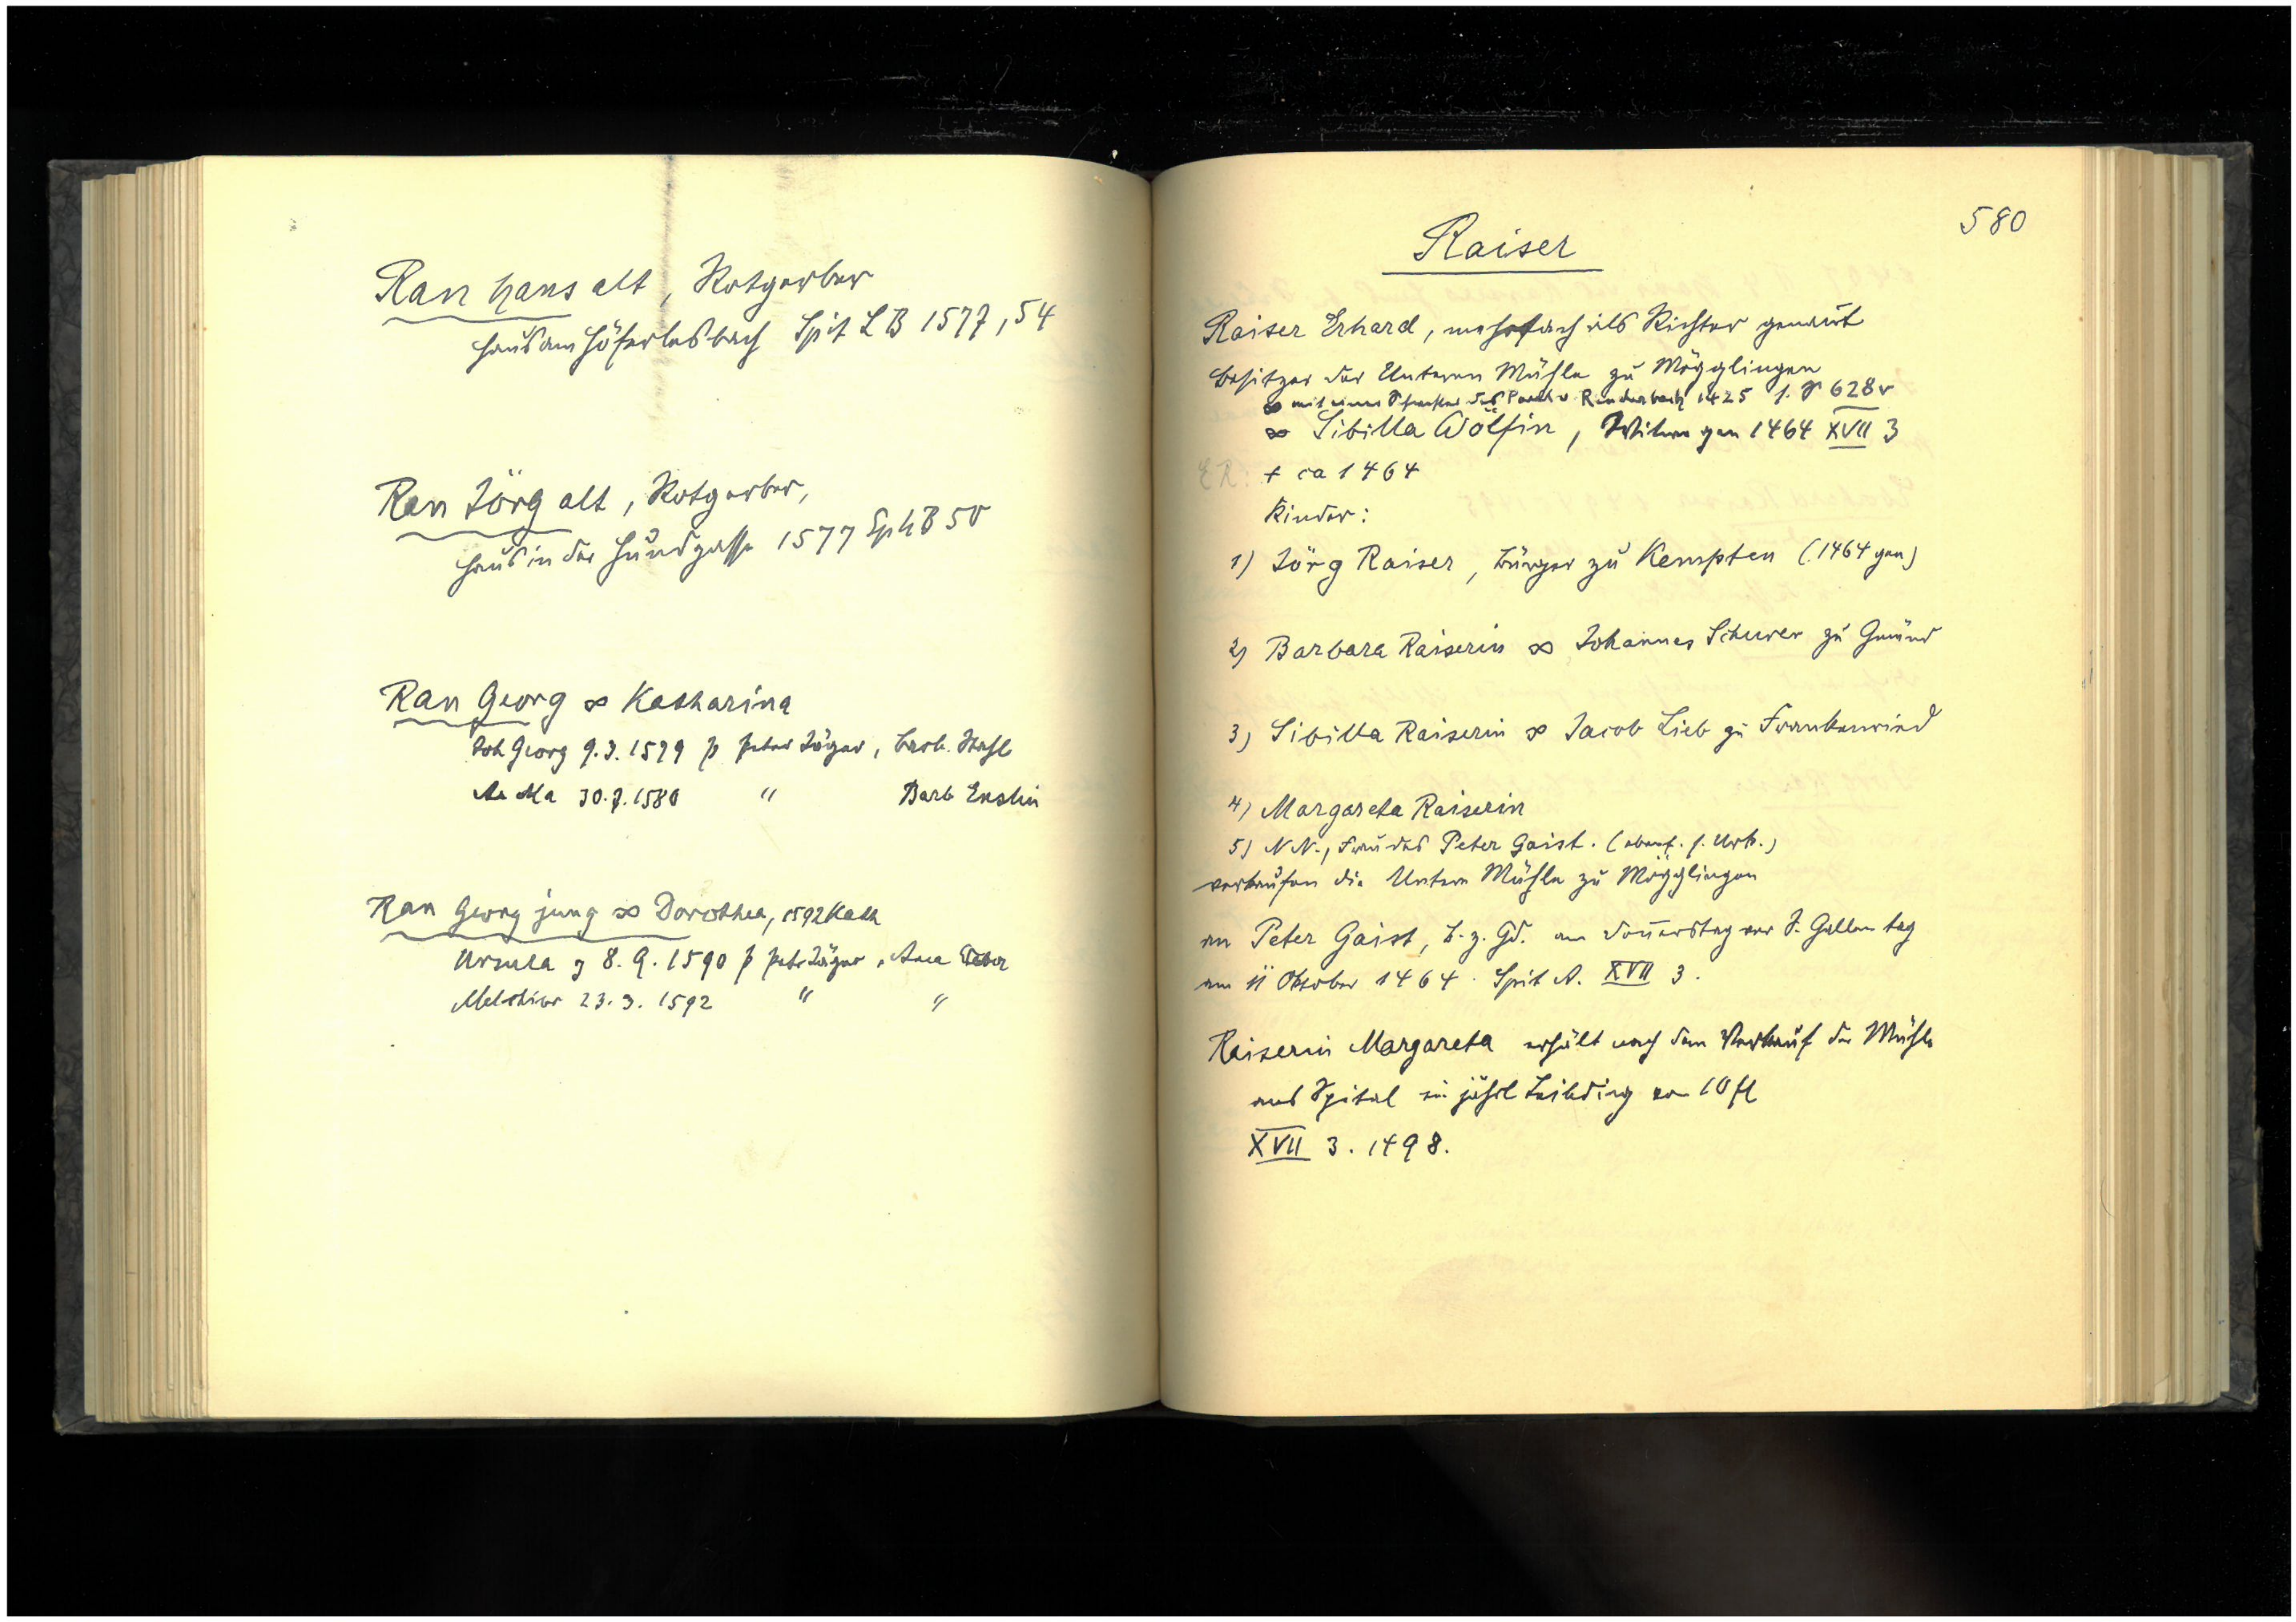 Ran Hans alt, Rotgerber
Haus am Höferlesbach Spit L B 1577, 54
Ran Jörg alt, Rotgerber,
Haus in der Hundgasse 1577 Sp L B 50
Ran Georg ∞ Katharina
Joh Georg 9.3.1579 p Peter Jäger, Barb.
An Ma 30.7.1580 " Barb Enslin
Ran Georg jung ∞ Dorothea, 1592 Kath
Ursula 8.9.1590 p Pet Jäger, Anna
Melchior 23.3.1592 " "
580
Raiser
Raiser Erhard, mehrfach als Richter genannt
Besitzer der Unteren Mühle zu Mögglingen
∞ mit einer Tochter des Paul v Rinderbach 1425 s. S 628v
∞ Sibilla Wölfin, Witwe gen 1464 XVII 3
ER: + ca 1464
Kinder:
1) Jörg Raiser, Bürger zu Kempten (1464 gen)
2) Barbara Raiserin ∞ Johannes Schurer zu Gmünd
3) Sibilla Raiserin ∞ Jacob Lieb zu Frankenried
4) Margareta Raiserin
5) N N., Frau des Peter Gaist. (ebenf. s. Urk.)
verkaufen die Untere Mühle zu Mögglingen
an Peter Gaist, B. z. Gd. am Donnerstag vor S. Gallen tag
am 11 Oktober 1464. Spit A. XVII 3.
Raiserin Margareta erhält nach dem Verkauf der Mühle
ans Spital ein jährl Leibding von 10 fl
XVII 3. 1498.